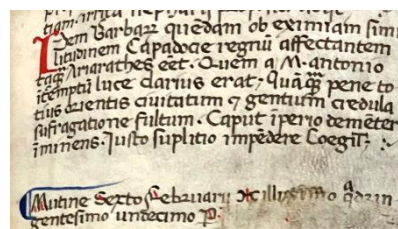 Idem Barbarum quēdam ob eximiam simi
litudinem Capadocie regnū affectantem
tāq̄ Ariarathes eēt. Quem a M. antonio
ītēmptū luce clarius erat: quāq̄ pene to
tius orientis civitatum et gentium credula
sufragatione fultum. Caput īperio demēter
īminens. Justo suplitio impēdere Coegit:
Mutine Sexto Februarii
gentesimo undecimo P.